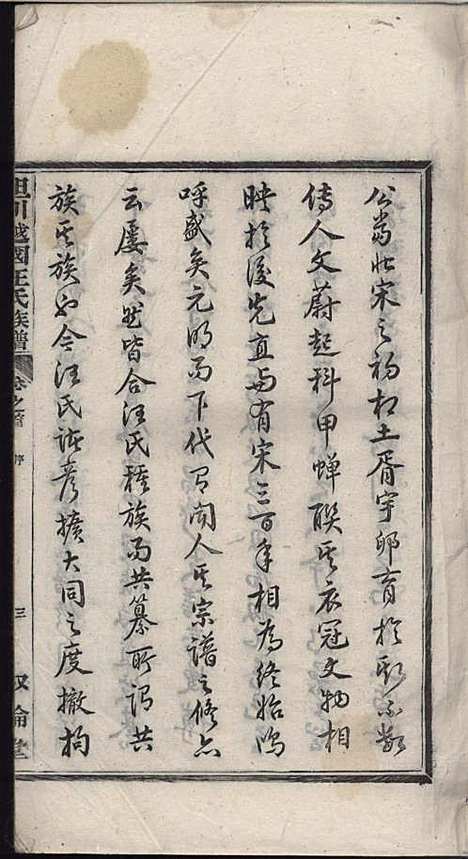 公當北宋之初相土胥宇卵育於彭不數
傳人文蔚起科甲蟬聯其衣冠文物相
映於後先直與有宋三百年相為終始嗚
呼盛矣元明而下代有聞人其宗譜之修亦
云屢矣然皆合汪氏種族而共纂所謂共
族其族也今汪氏諸彥擴大同之度撤拘
坦川越國汪氏族譜 卷之首 序 三 敘倫堂